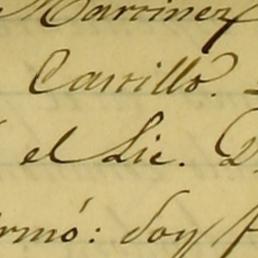 Martinez
Carrillo.
el Lic. D
rmó: Soy f